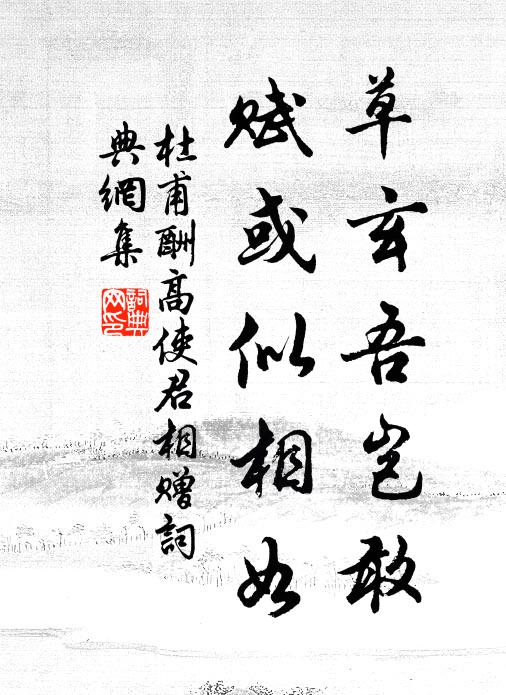 草玄吾豈敢
賦或似相如
杜甫酬高使君相贈詞
典網集
詞典网印